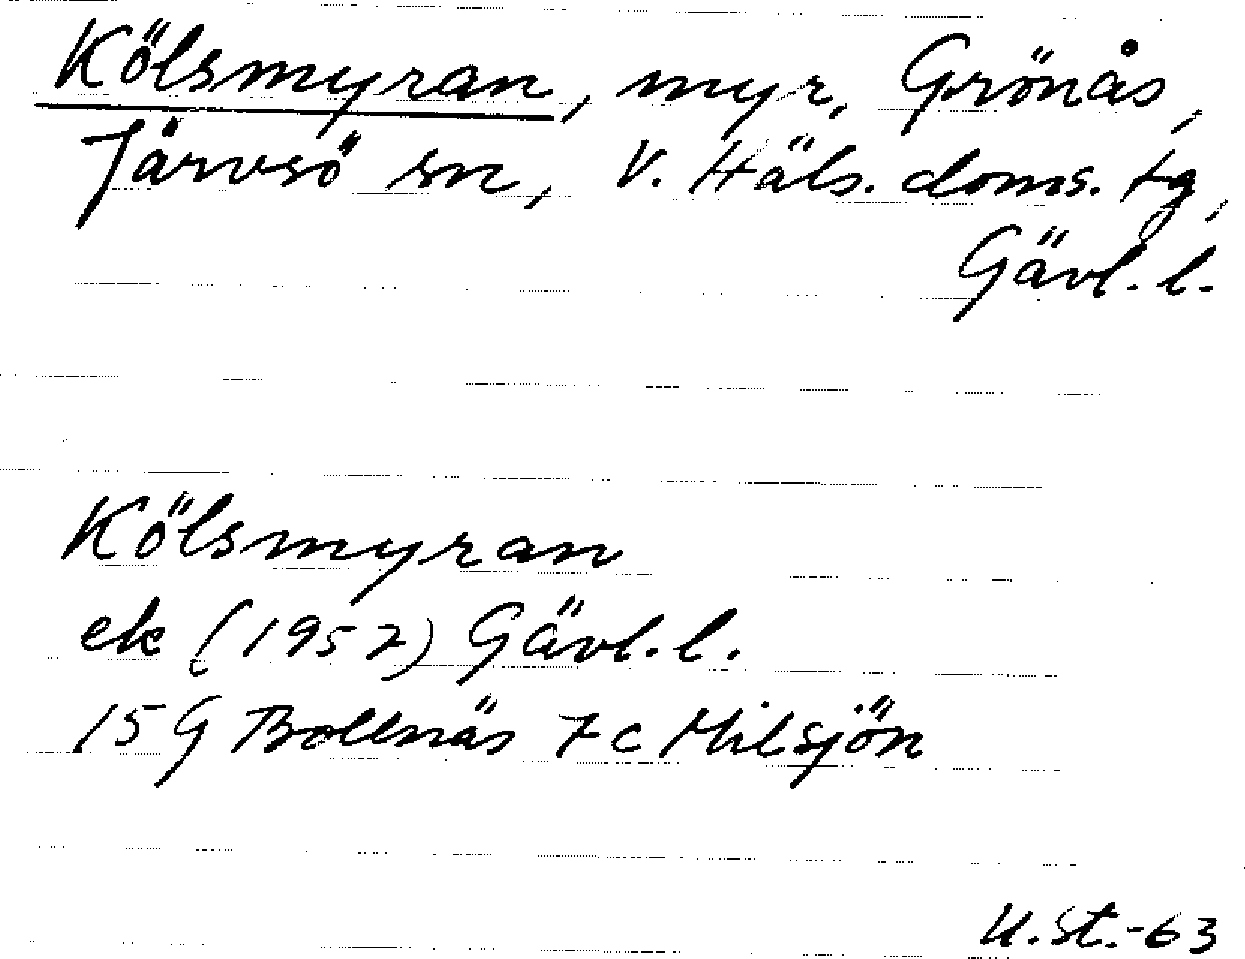 Kölsmyran, myr, Grönås,
Järvsö sn, V. Häls. doms. tg,
Gävl. l.
Kölsmyran
ek (1957) Gävl. l.
15 G Bollnäs 7 c Milsjön
U. St.-63